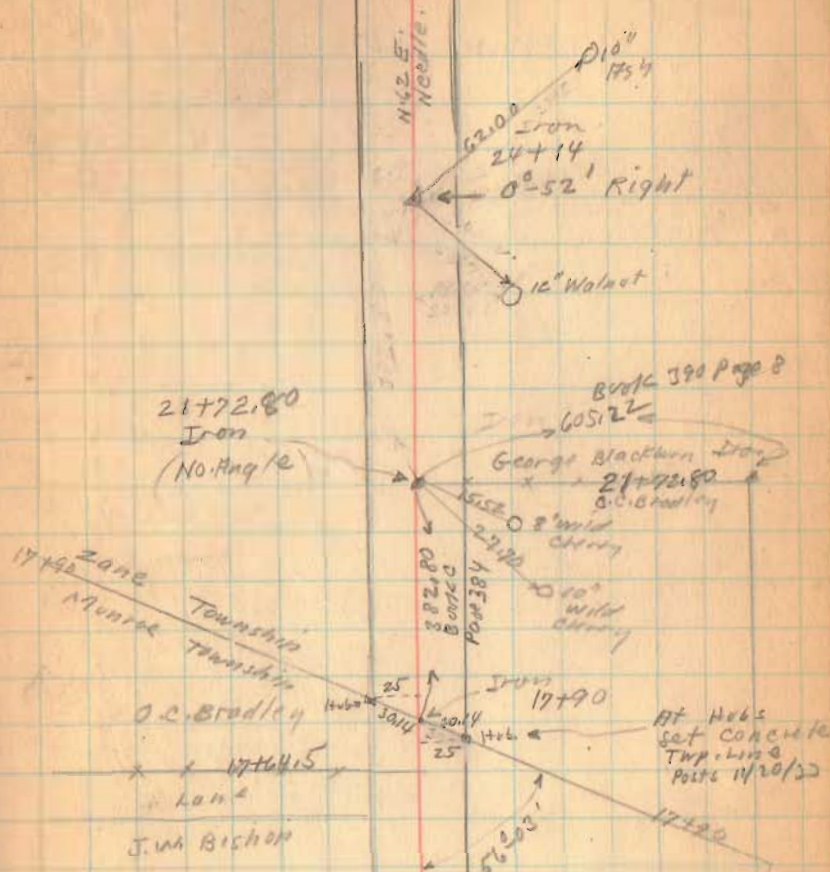 N.62 E.
Needle.
10"
Ash
62.00
Iron
24+14
0°-52' Right
12" Walnut
Book 390 Page 8
605.22
21+72.80
Iron
(No. Angle)
George Blackburn
Iron
21+72.80
O.C. Bradley
15.52
8" Wild
Cherry
27.90
10"
Wild
Cherry
382.80
Book C
Page 384
17+90
Zane
Township
Munroe
Township
25
Hub
30.14
30.14
Iron
17+90
25
Hub.
O.C. Bradley
At Hubs
set Concrete
Twp. Line
Posts
17+64.5
Lane
J.W. Bishop
56°-03'
17+90